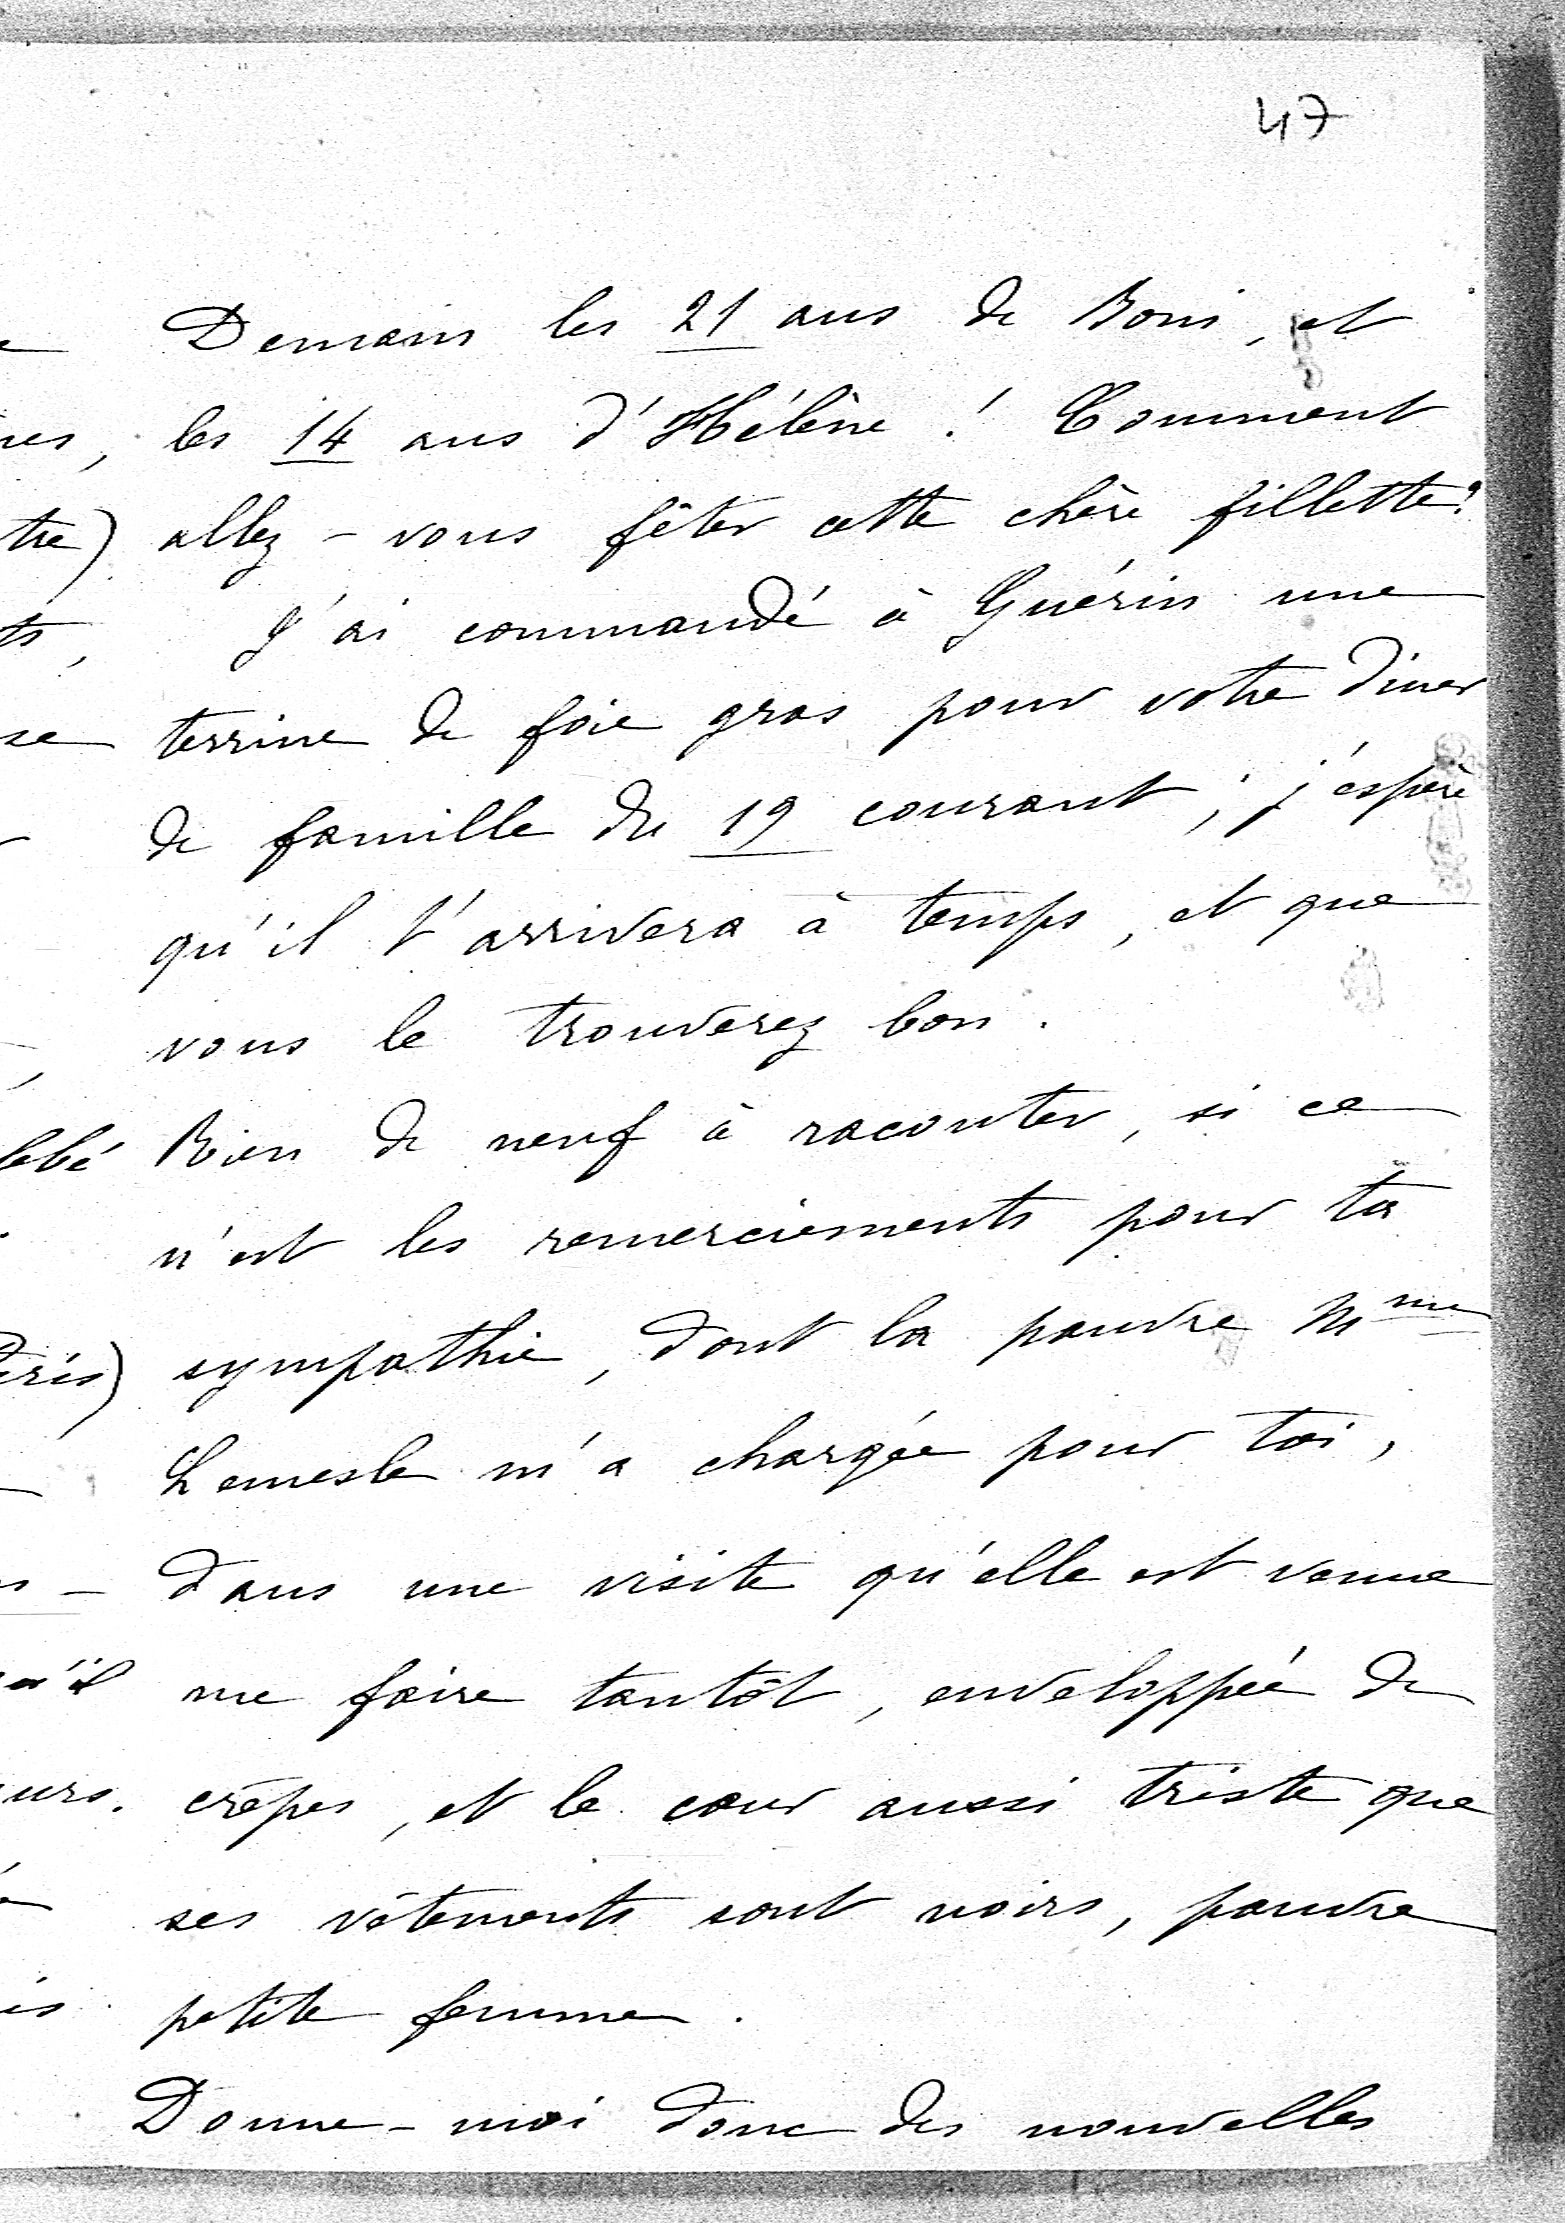 47
Demain les 21 ans de Boni, et
les 14 ans d'Hélène ! Comment
allez-vous fêter cette chère fillette?
J'ai commandé à Guérin une
terrine de foie gras pour votre diner
de famille du 19 courant ; j'espère
qu'il t'arrivera à temps, et que
vous le trouverez bon.
Rien de neuf à raconter, si ce
n'est les remerciements pour ta
sympathie, dont la pauvre Mme
Lemesle m'a chargée pour toi,
dans une visite qu'elle est venue
me faire tantôt, enveloppée de
crêpes, et le cœur aussi triste que
ses vêtements sont noirs, pauvre
petite femme.
Donne-moi donc des nouvelles